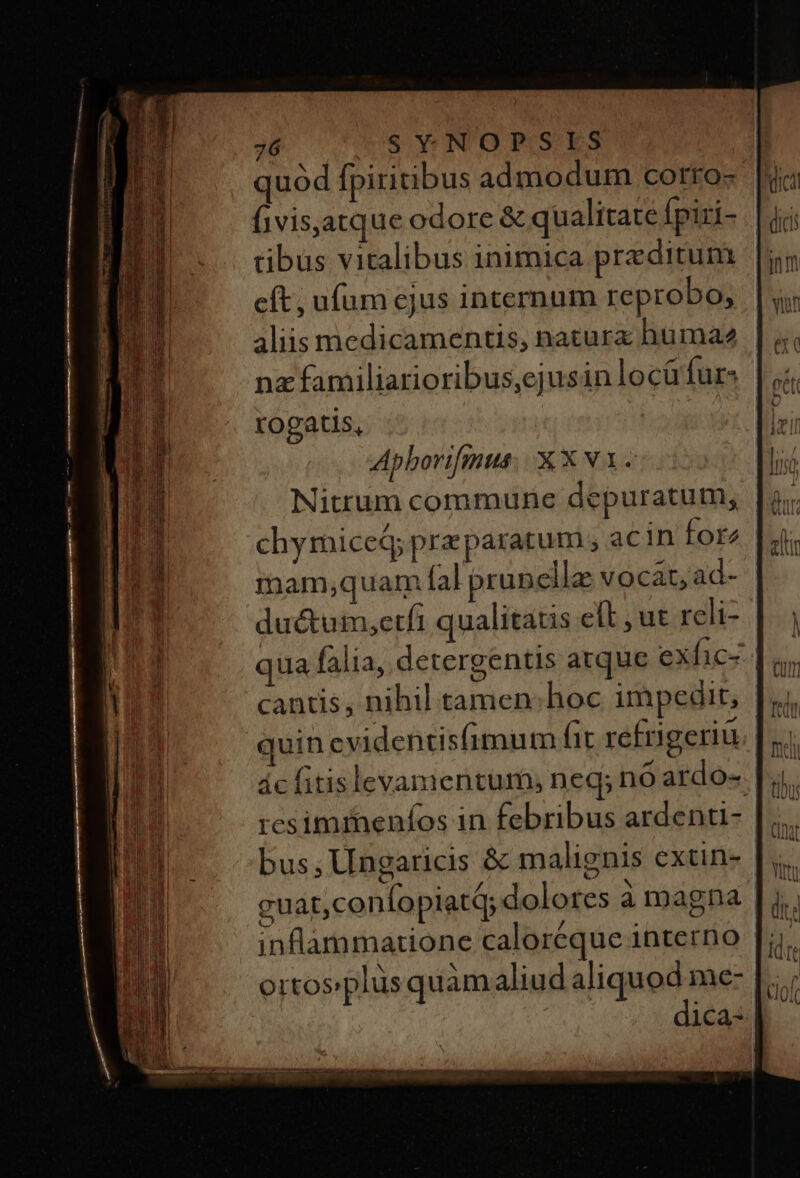 76 SYNOPSIS
quòd ſpiritibus admodum corro-
ſivis,atque odore & qualitate ſpiri-
tibus vitalibus inimica præditum
eſt, uſum ejus internum reprobo,
aliis medicamentis, naturæ huma-
næ familiarioribus,ejus in locū ſur-
rogatis,
Aphoriſmus XXVI.
Nitrum commune depuratum,
chymiceq́; præparatum, ac in for-
mam,quam ſal prunellæ vocāt, ad-
ductum,etſi qualitatis eſt, ut reli-
qua ſalia, detergentis atque exſic-
cantis, nihil tamen hoc impedit,
quin evidentisſimum ſit refrigeriū
ác ſitis levamentum, neq; nō ardo-
res immenſos in febribus ardenti-
bus, Ungaricis & malignis extin-
guat,conſopiatq́; dolores à magna
inflammatione caloréque interno
ortos plùs quàm aliud aliquod me-
dica-